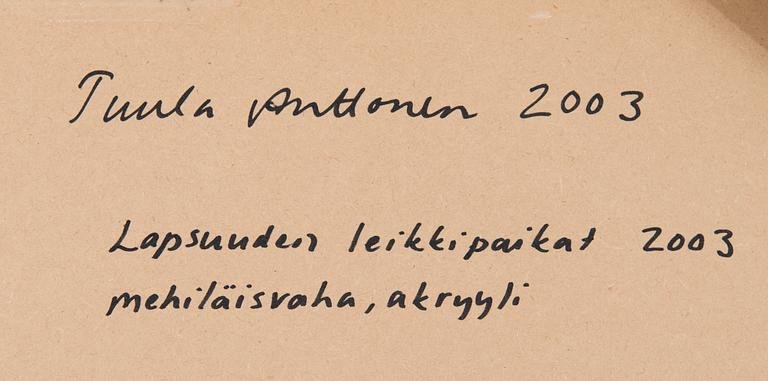 Tuula Anttonen 2003
Lapsuuden leikkipaikat 2003
mehiläisvaha, akryyli